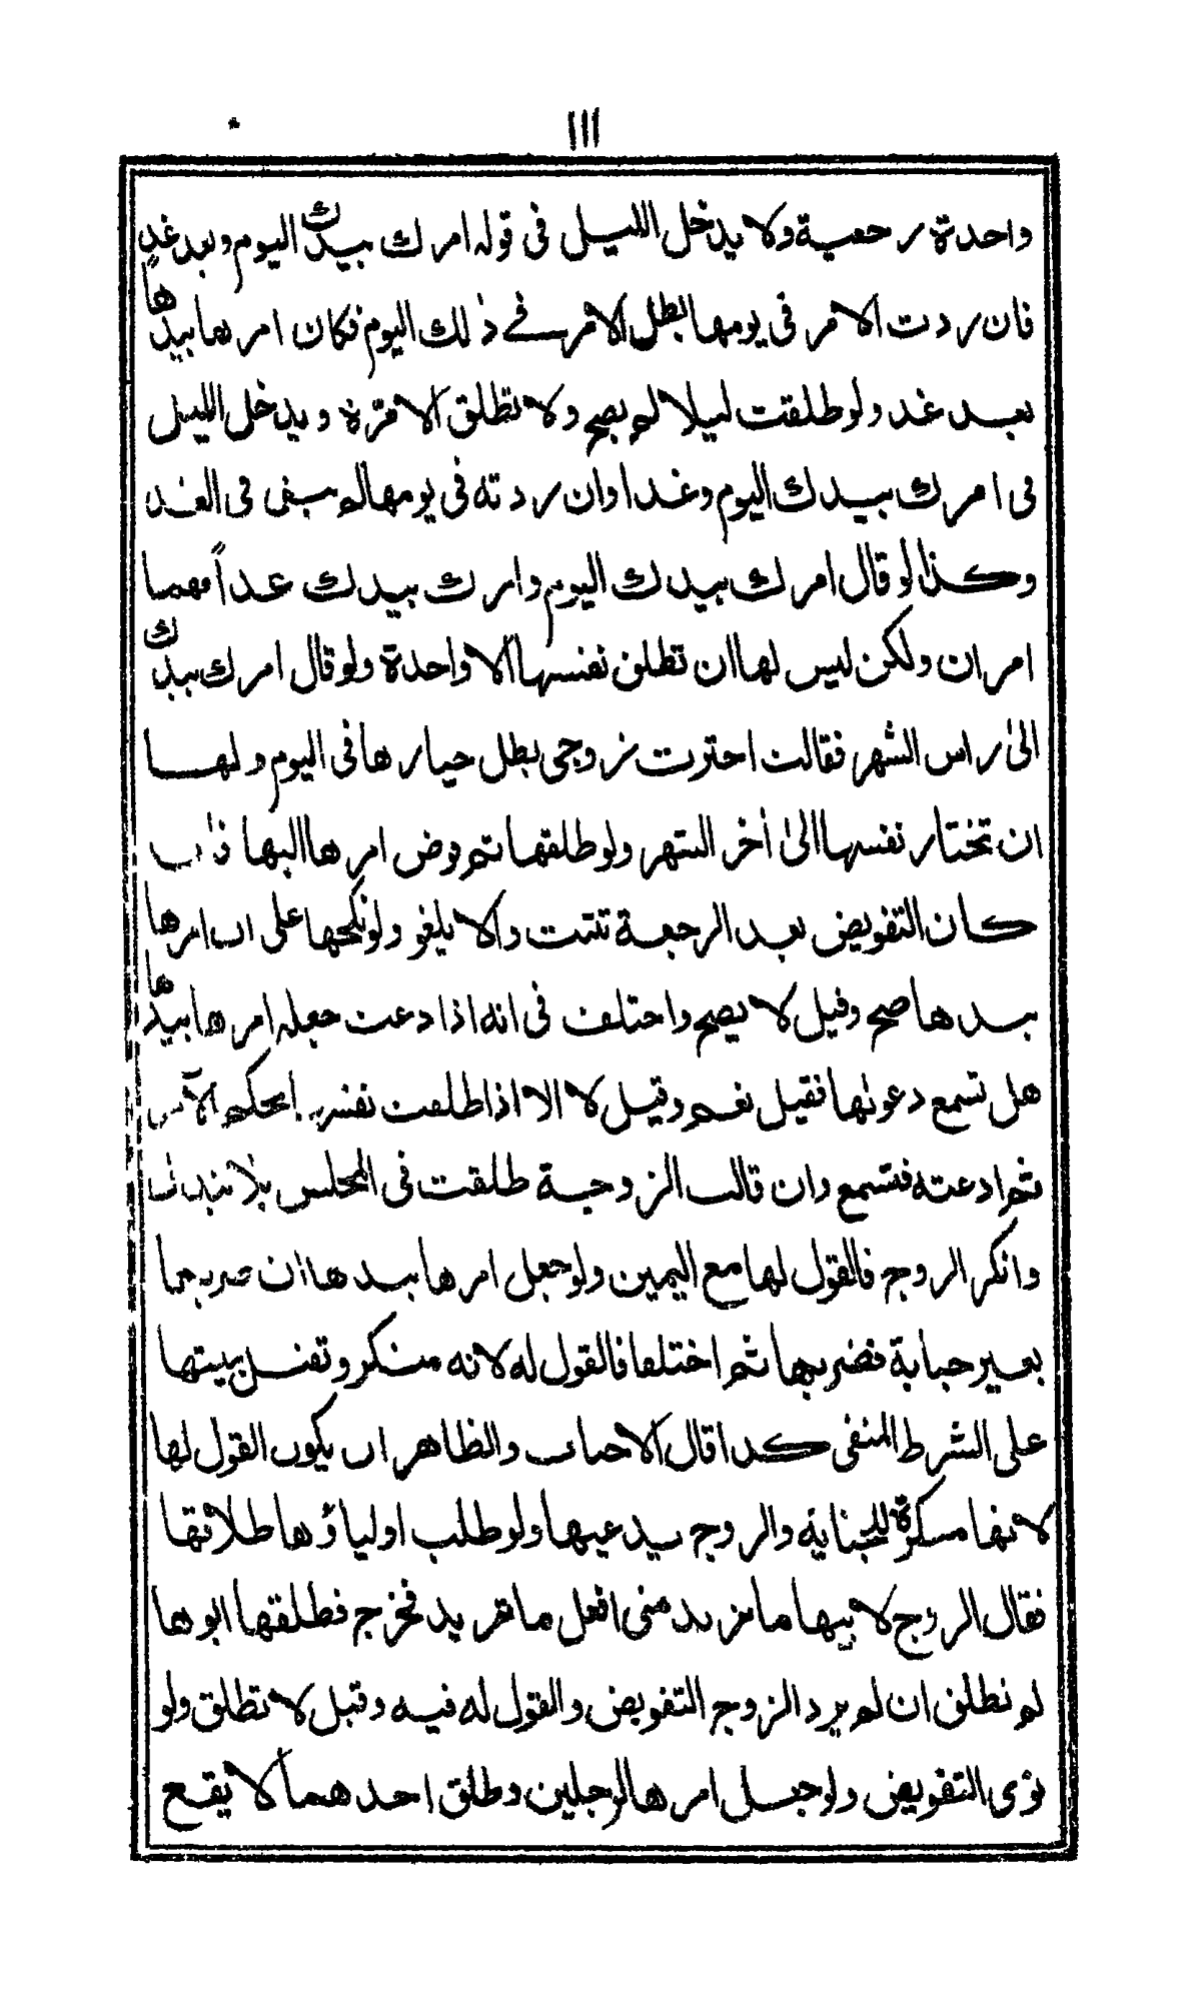 ١١١
واحدة رجعية ولا يدخل الليل فى قوله امرك بيدك اليوم وبعد غد
فان ردت الامر فى يومها بطل الامر فے ذلك اليوم فكان امرها بيدها
بعد غد ولو طلقت ليلا لم يصح ولا تطلق الا مرّة ويدخل الليل
فى امرك بيدك اليوم وغدا وان ردته فى يومها لم يبق فى الغد
وكذا لو قال امرك بيدك اليوم وامرك بيدك غداً فهما
امران ولكن ليس لها ان تطلق نفسها الا واحدة ولو قال امرك بيدك
الى راس الشهر فقالت اخترت زوجى بطل خيارها فى اليوم ولها
ان تختار نفسها الى أخر الشهر ولو طلقها ثم فوض امرها اليها
كان التفويض بعد الرجعة تثبت والا يلغو ولو نكحها على ان امرها
بيدها صح وقيل لا يصح واختلف فى انه اذا دعت جعله امرها بيدها
هل تسمع دعوٰها فقيل نعم وقيل لا الا اذا طلقت نفسها بحكم الامر
ثم ادعته فتسمع وان قالت الزوجة طلقت فى المجلس بلا تبدل
وانكر الزوج فالقول لها مع اليمين ولو جعل امرها بيدها ان ضربها
بغير جناية فضربها ثم اختلفا فالقول له لانه منكر وتقبل بينتها
على الشرط المنفى كذا قال الاحباب والظاهر ان يكون القول لها
لانها منكرة للجناية والزوج يدعيها ولو طلب اولياؤها طلاقها
فقال الزوج لابيها ما تريد منى افعل ما تريد فخرج فطلقها ابوها
لم تطلق ان لم يرد الزوج التفويض والقول له فيه وقيل لا تطلق ولو
نوى التفويض ولو جعل امرها لرجلين وطلق احدهما لا يقع